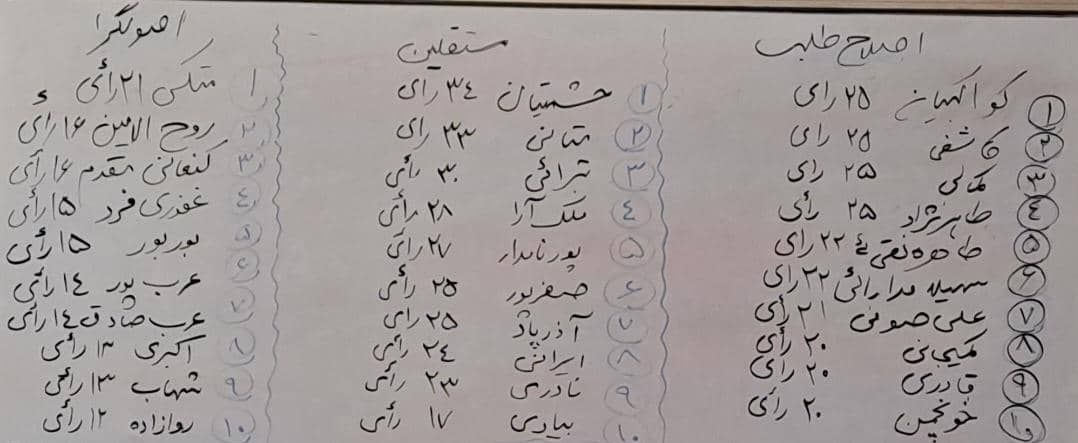 اصلاح طلب
۱ کواکبیان ۲۵ رای
۲ کاشفی ۲۵ رای
۳ کمالی ۲۵ رای
۴ طاهرنژاد ۲۵ رأی
۵ طاهره نقیئی ۲۲ رای
۶ سهیلا مدارائی ۲۲ رای
۷ علی صوفی ۲۱ رأی
۸ کمیجانی ۲۰ رأی
۹ قادری ۲۰ رأی
۱۰ خونچمن ۲۰ رأی
مستقلین
۱ حشمتیان ۳۴ رای
۲ متانی ۳۳ رای
۳ ترائی ۳۰ رأی
۴ ملک آرا ۲۸ رأی
۵ پورنامدار ۲۷ رای
۶ صفرپور ۲۵ رأی
۷ آذرپاد ۲۵ رای
۸ ایرانی ۲۴ رأی
۹ نادری ۲۳ رأی
۱۰ بیادی ۱۷ رأی
اصولگرا
۱ متکی ۲۱ رأی
۲ روح الامین ۱۶ رأی
۳ کنعانی مقدم ۱۶ رأی
۴ غفوری فرد ۱۵ رأی
۵ پورپور ۱۵ رأی
۶ عرب پور ۱۴ رأی
۷ عرب صادق ۱۴ رأی
۸ اکبری ۱۳ رأی
۹ شهاب ۱۳ رأی
۱۰ روازاده ۱۲ رأی